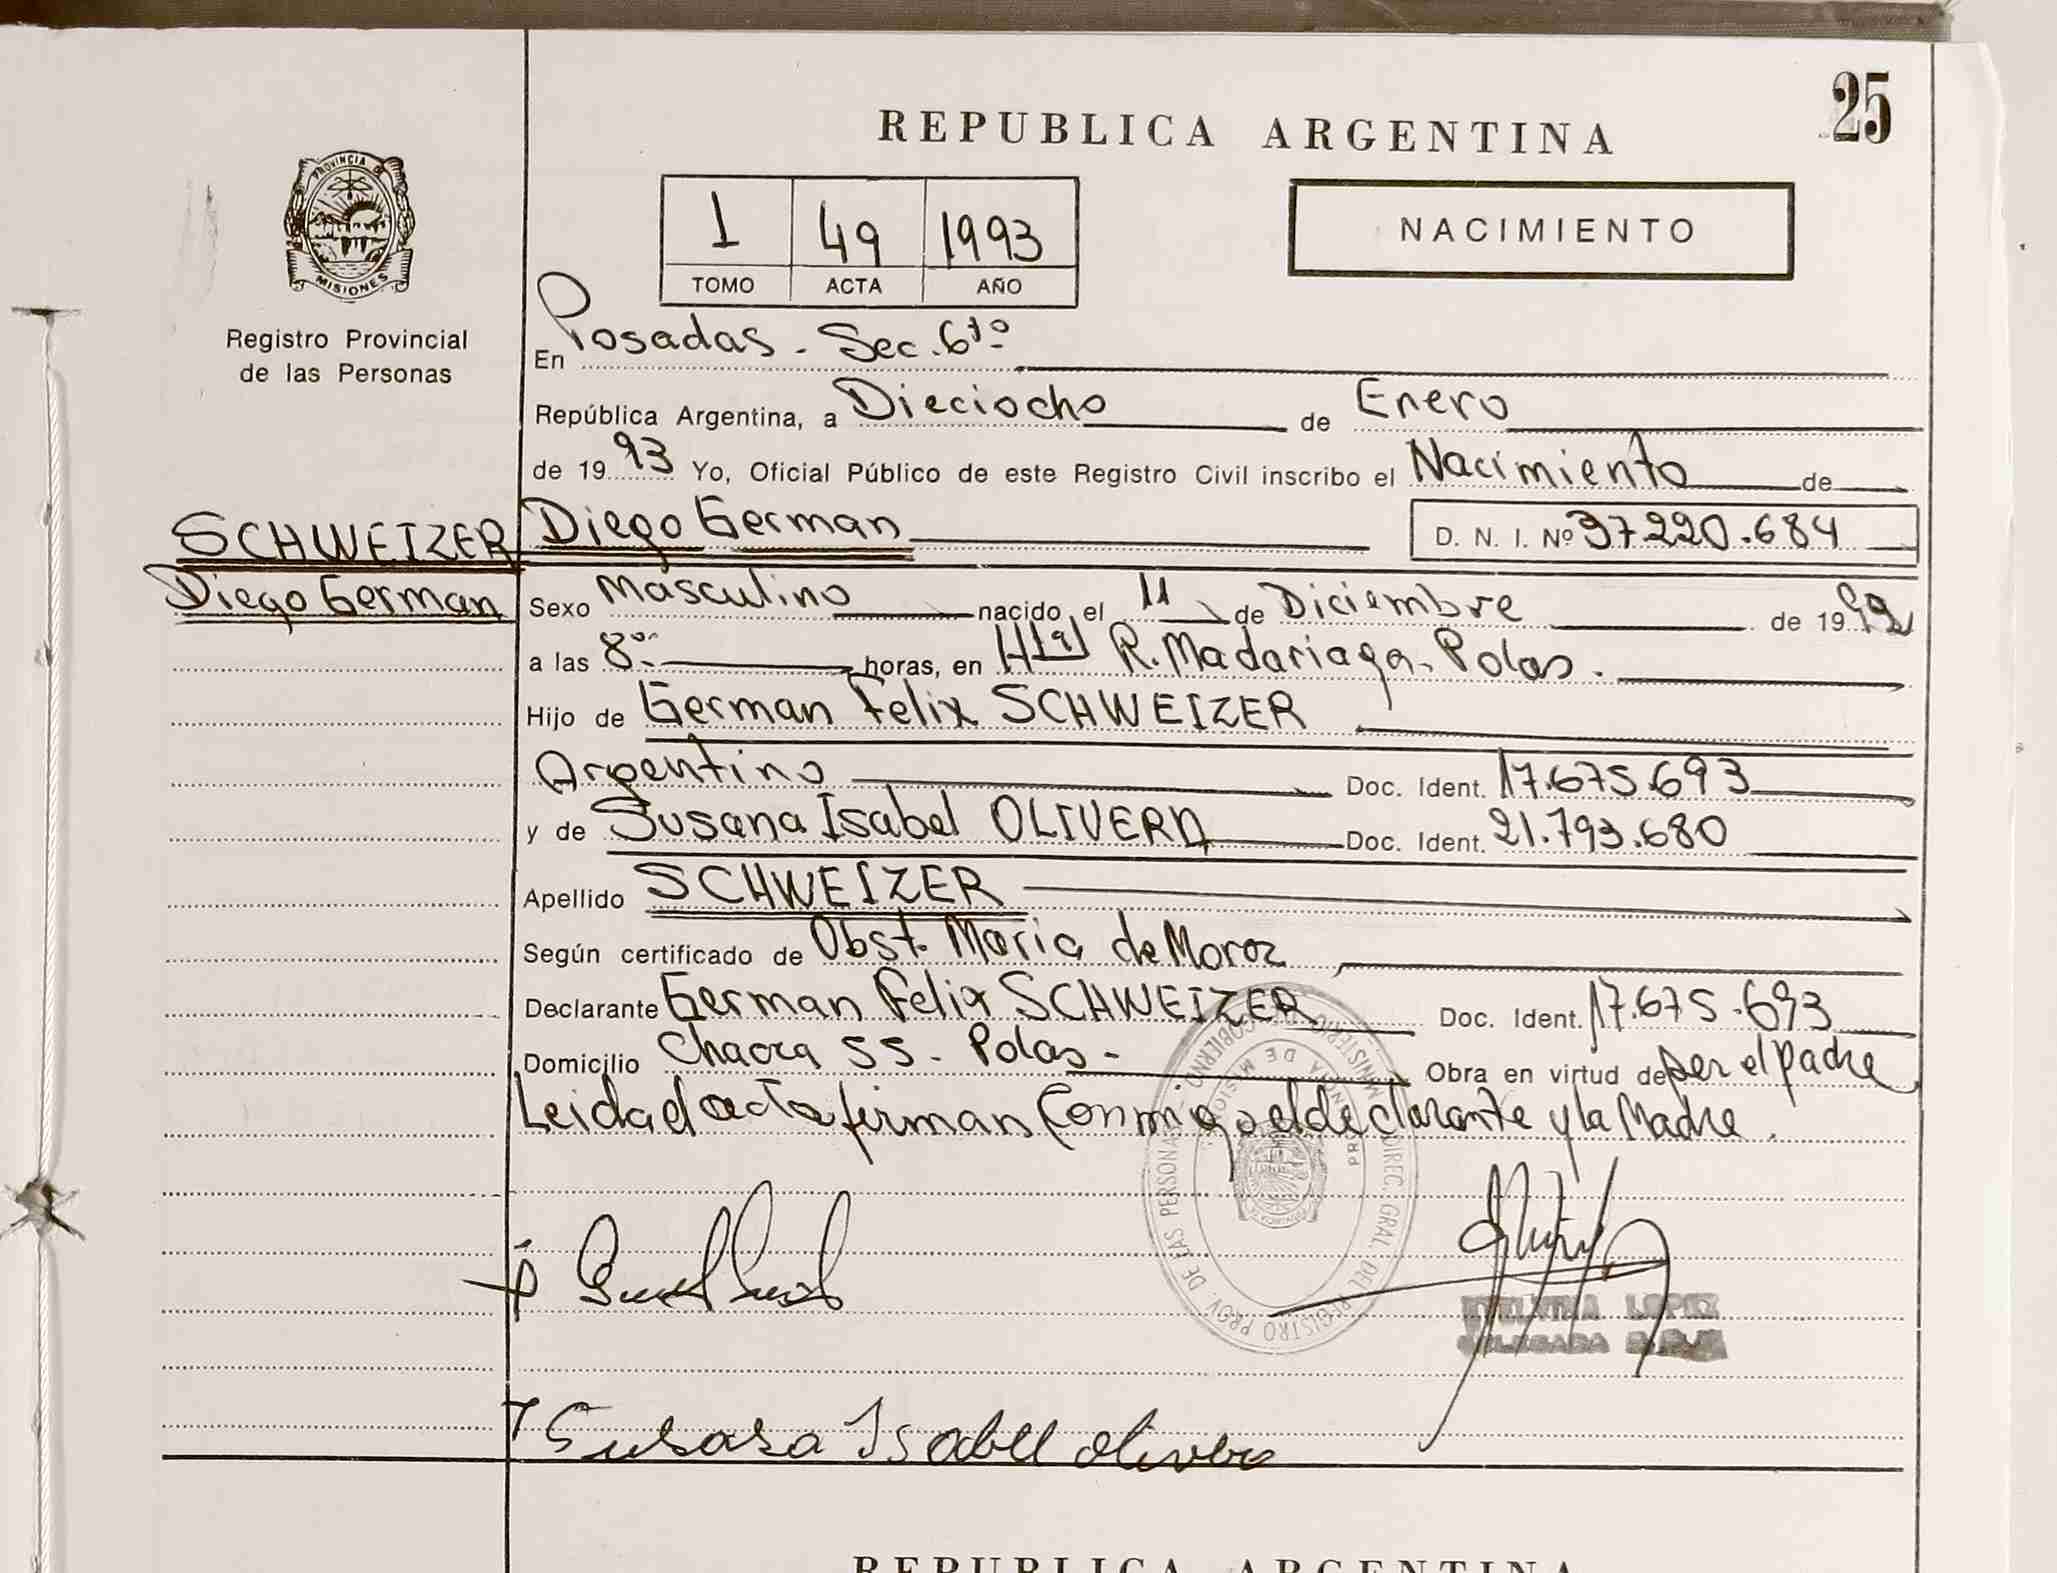 25
REPUBLICA ARGENTINA
NACIMIENTO
1 49 1993
TOMO ACTA AÑO
PROVINCIA DE
MISIONES
Registro Provincial
de las Personas
En Posadas - Sec. 6ta
República Argentina, a Dieciocho de Enero
de 1993 Yo, Oficial Público de este Registro Civil inscribo el Nacimiento de
SCHWEIZER Diego German D. N. I. Nº 37220.684
Diego German
Sexo Masculino nacido el 11 de Diciembre de 1992
a las 8 horas, en Htal R. Madariaga - Pdas.
Hijo de German Felix SCHWEIZER
Argentino Doc. Ident. 17.675.693
y de Susana Isabel OLIVERA Doc. Ident. 21.793.680
Apellido SCHWEIZER
Según certificado de Obst. Maria de Moroz
Declarante German Felix SCHWEIZER Doc. Ident. 17.675.693
Domicilio Chacra 55 - Pdas - Obra en virtud de ser el padre
Leida el acta firman Conmigo el declarante y la Madre.
MINISTERIO DE GOBIERNO
DIREC. GRAL. DEL REGISTRO PROV. DE LAS PERSONAS
PROVINCIA DE MISIONES
LOPEZ
DELEGADA
Susana Isabel Olivera
REPUBLICA ARGENTINA